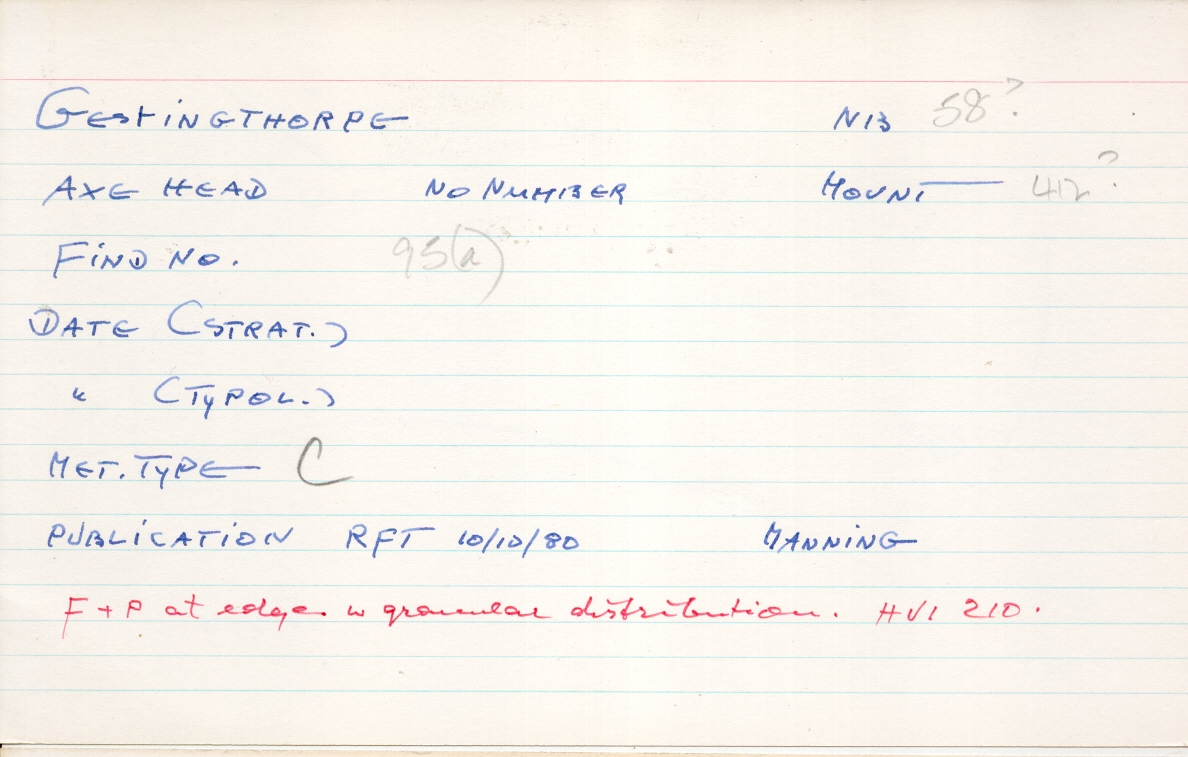 GESTINGTHORPE NB 58?
AXE HEAD NO NUMBER MOUNT — 412?
FIND NO. 95(a)
DATE (STRAT.)
" (TYPOL.)
MET. TYPE — C
PUBLICATION RFT 10/10/80 MANNING
F + P at edge in granular distribution. HV1 210.